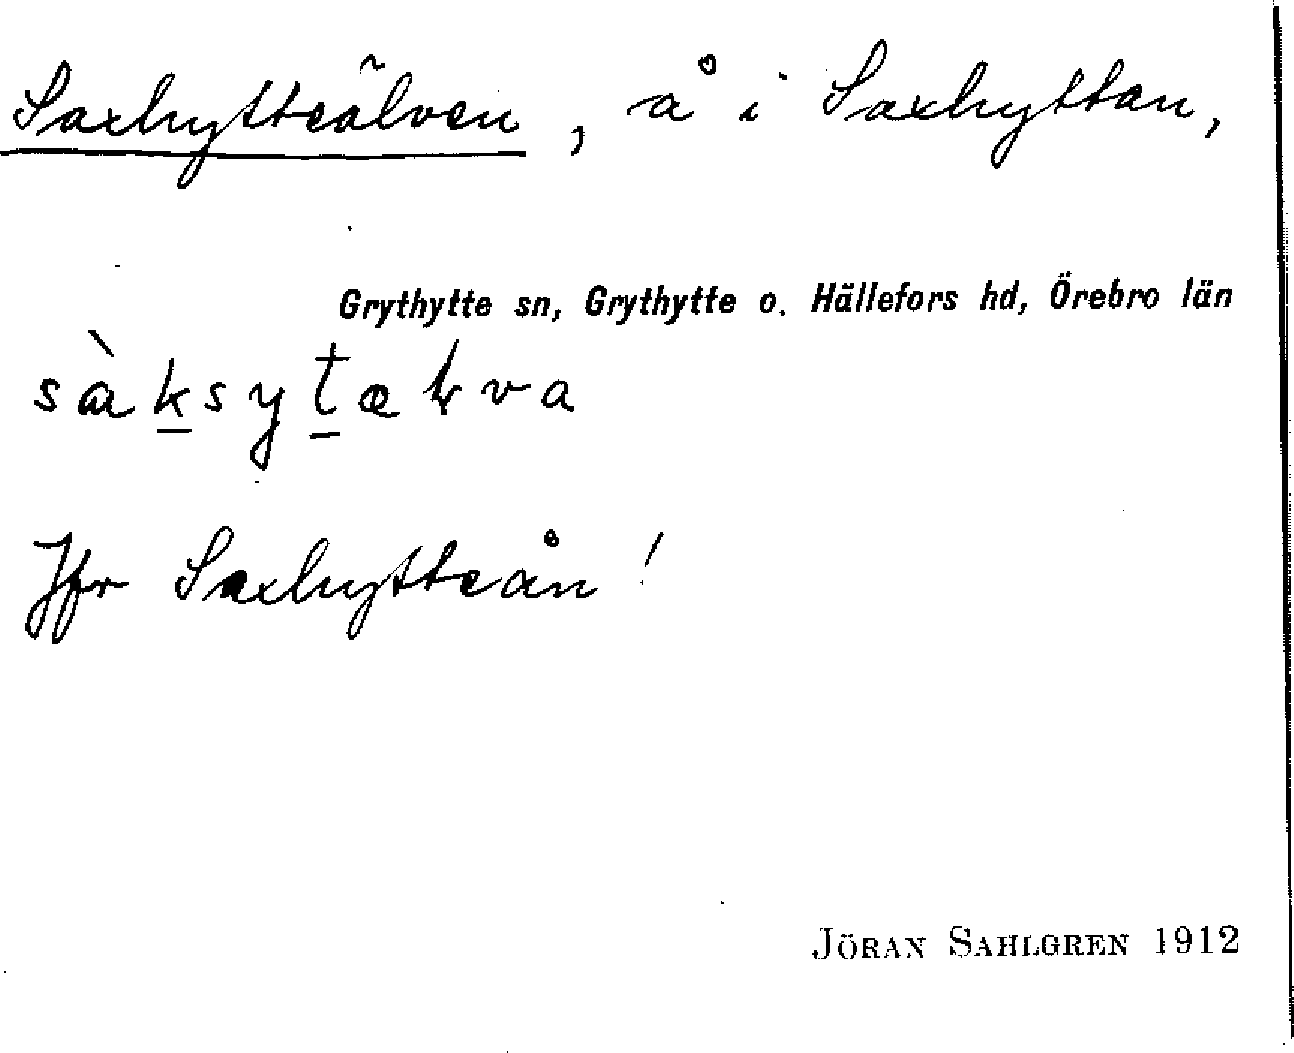 Saxhytteälven, å i Saxhyttan,
Grythytte sn, Grythytte o. Hällefors hd, Örebro län
Jfr Saxhytteån!
JÖRAN SAHLGREN 1912